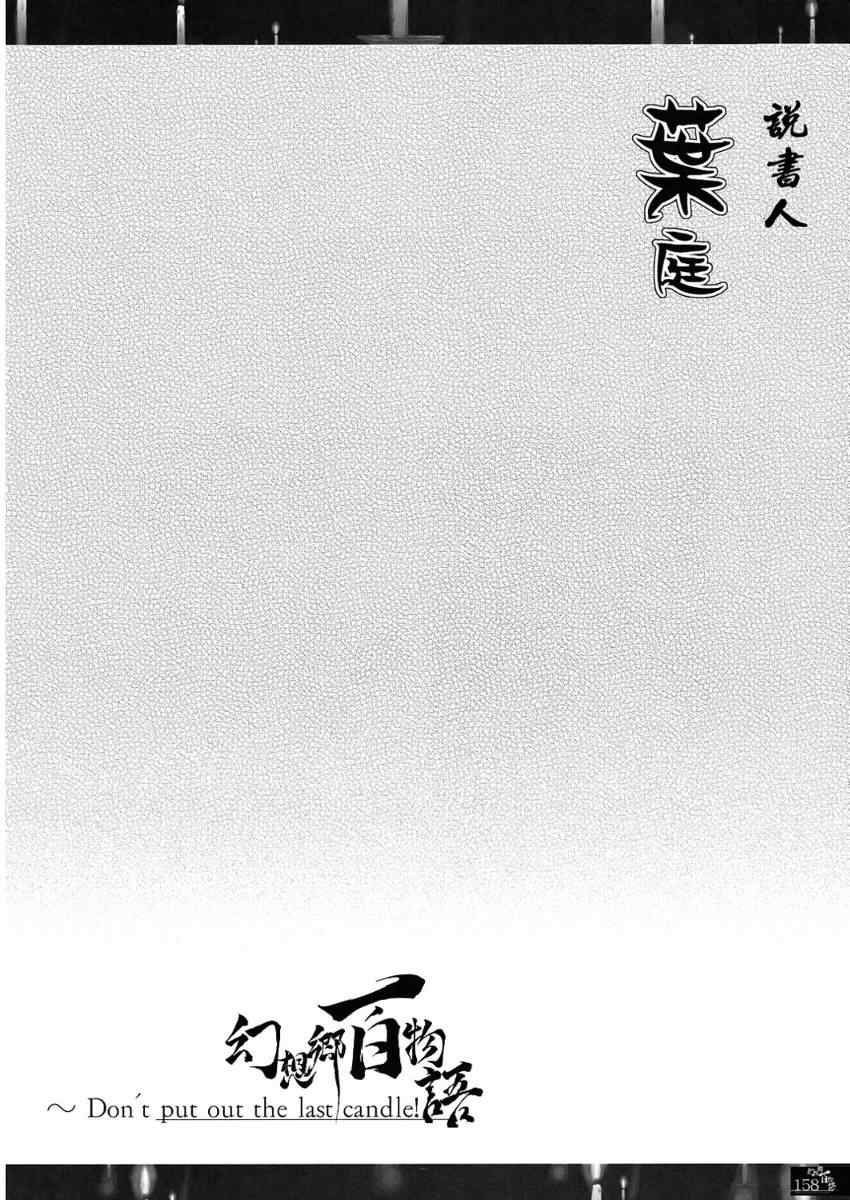 説書人
葉庭
幻想郷百物語
～ Don´t put out the last candle!
158